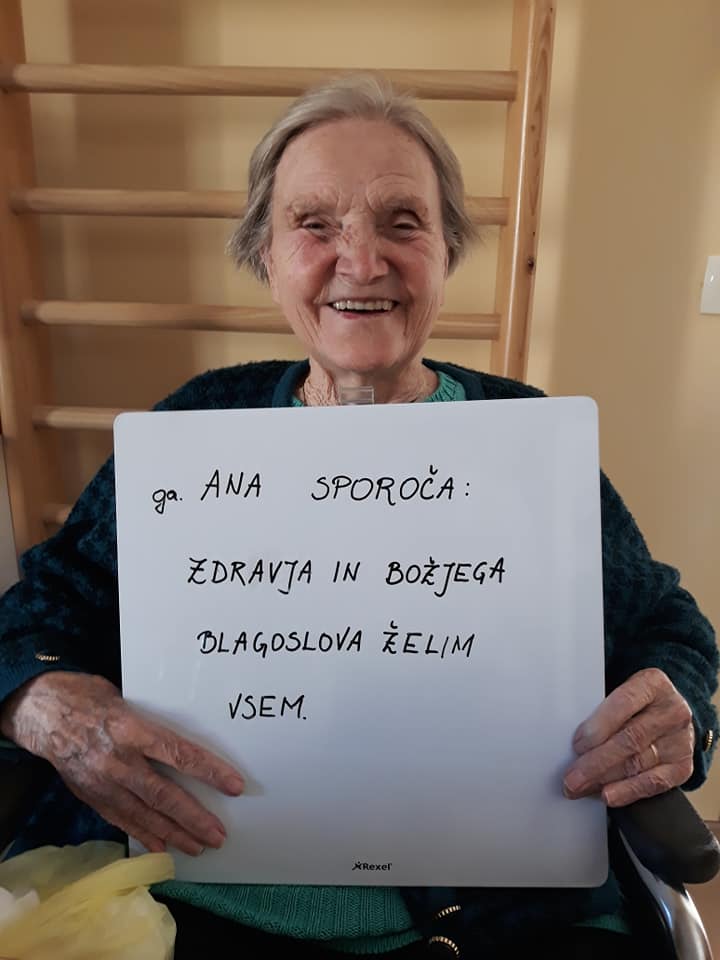 ga. ANA SPOROČA:
ZDRAVJA IN BOŽJEGA
BLAGOSLOVA ŽELIM
VSEM.
Rexel